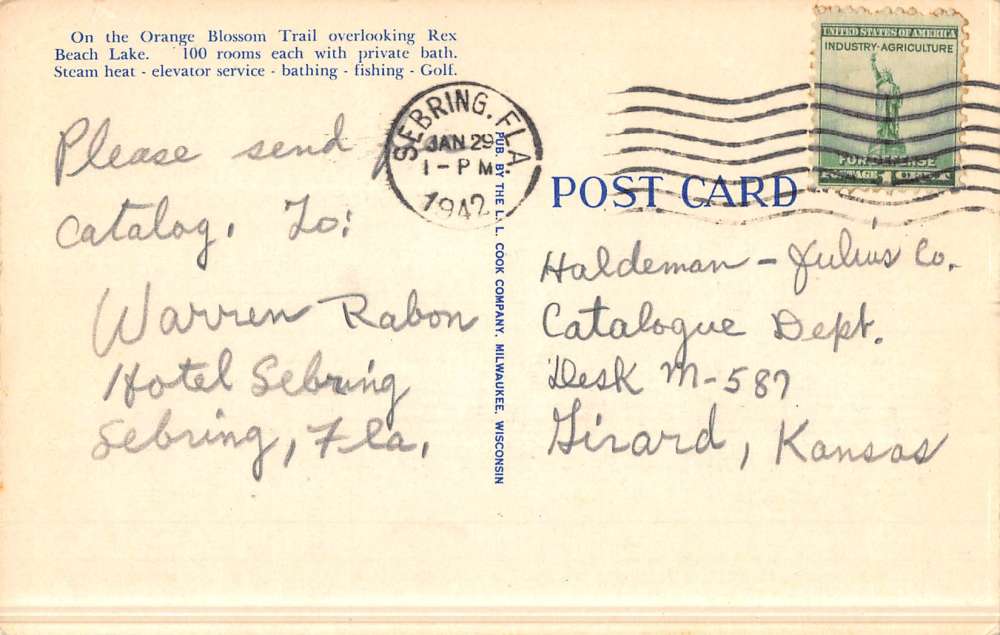 On the Orange Blossom Trail overlooking Rex
Beach Lake. 100 rooms each with private bath.
Steam heat - elevator service - bathing - fishing - Golf.
SEBRING. FLA.
JAN 29
1 - P M
1942
UNITED STATES OF AMERICA
INDUSTRY · AGRICULTURE
FOR DEFENSE
POSTAGE 1
POST CARD
PUB. BY THE L. L. COOK COMPANY, MILWAUKEE, WISCONSIN
Please send
Catalog. To:
Warren Rabon
Hotel Sebring
Sebring, Fla.
Haldeman - Julius Co.
Catalogue Dept.
Desk M-587
Girard, Kansas